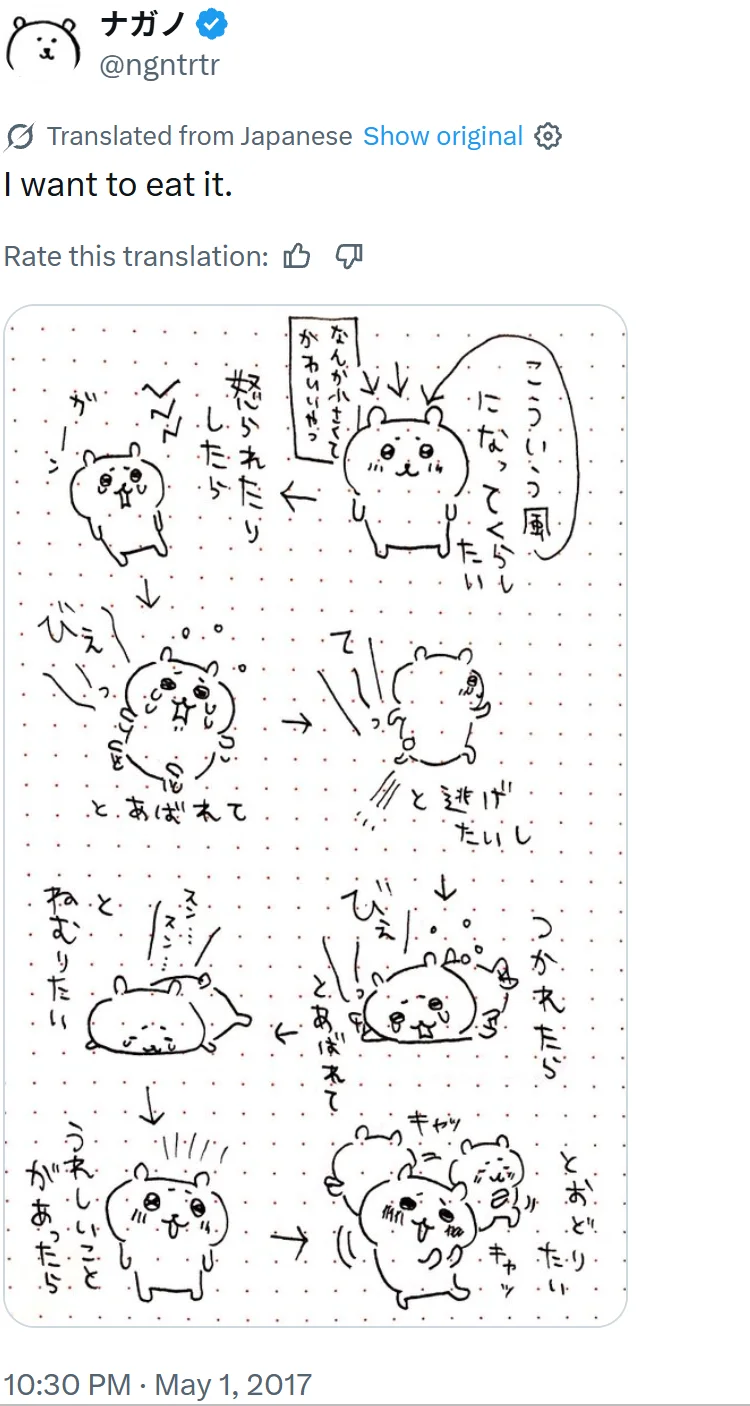 ナガノ
@ngntrtr
Translated from Japanese Show original
I want to eat it.
Rate this translation:
こういう風
になってくらし
たい
なんか小さくて
かわいいやつ
怒られたり
したら
ガーン
びぇーっ
と あばれて
てーっ
と 逃げ
たいし
つかれたら
びぇーっ
とあばれて
スン…
スン…
と
ねむりたい
うれしいこと
があったら
キャッ
キャッ
とおどり
たい
10:30 PM · May 1, 2017